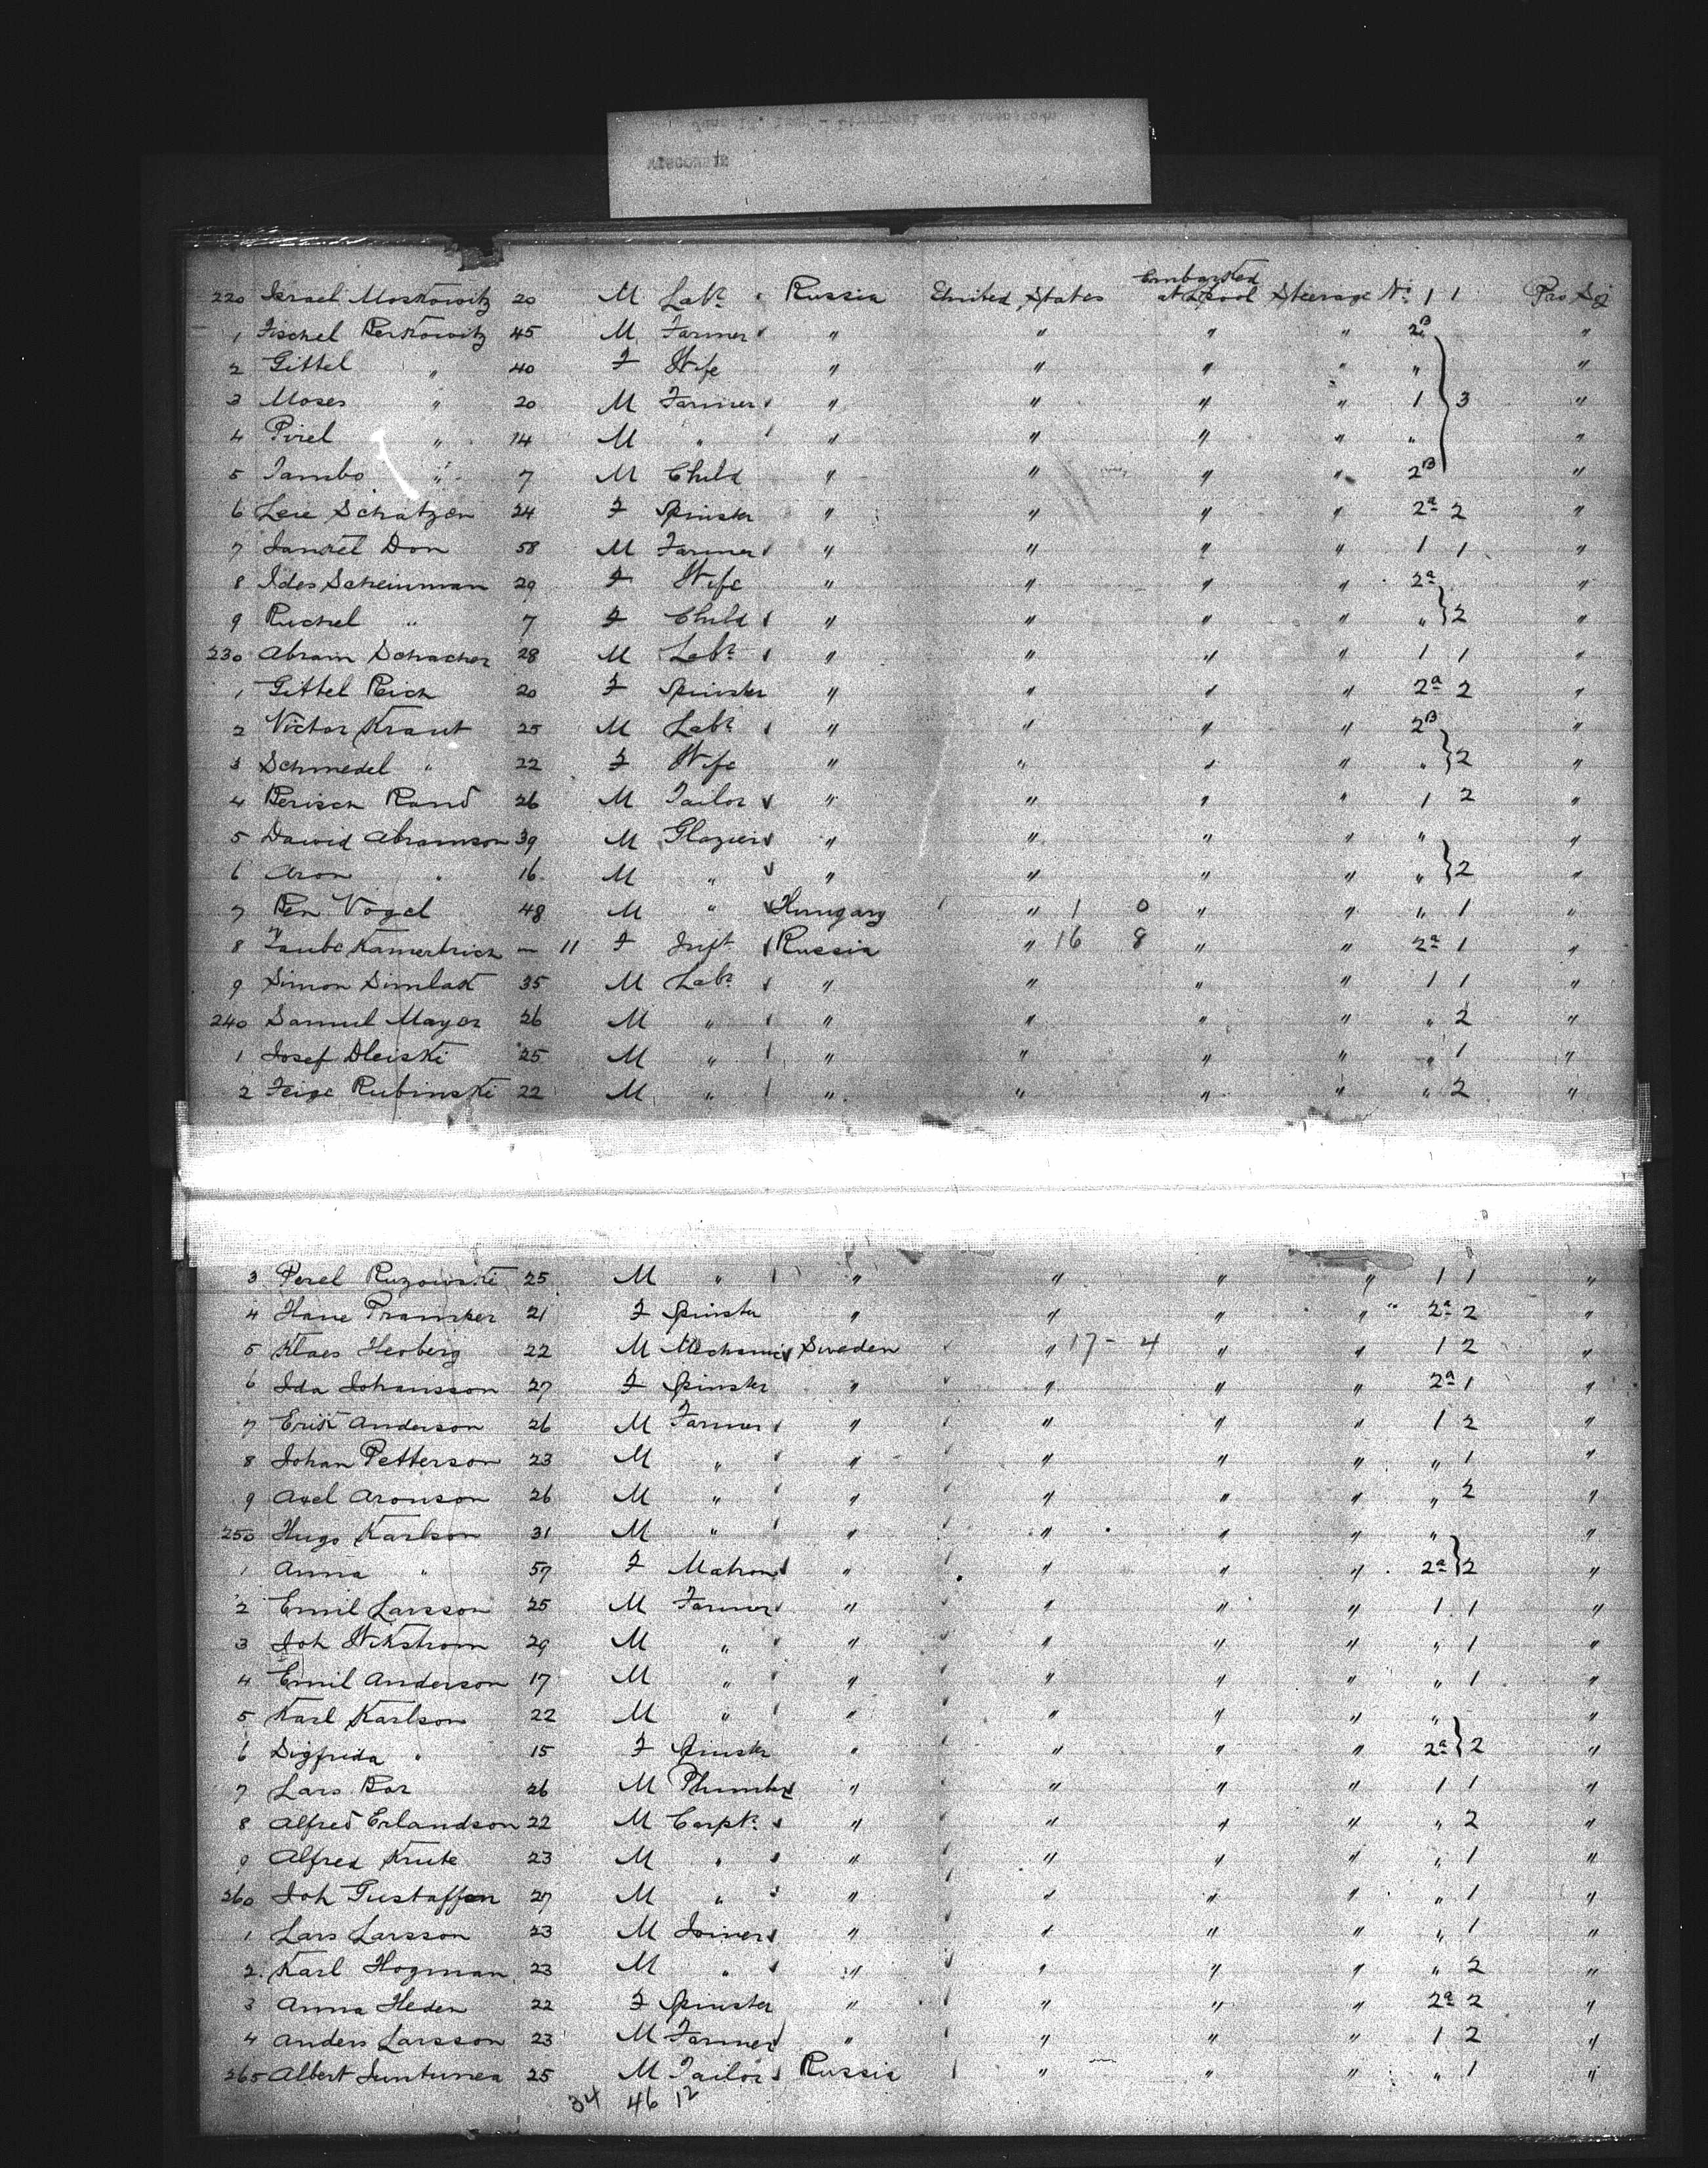 WISCONSIN
Embarked
220 Israel Moskowitz 20 M Labr Russia United States at Lpool Steerage No 1 1 Pro Soj
1 Fischel Berkowitz 45 M Farmer " " " " 2B "
2 Gittel " 40 F Wife " " " " " "
3 Moses " 20 M Farmer " " " " 1 3 "
4 Pirel " 14 M " " " " " " "
5 Jambo " 7 M Child " " " " 2B "
6 Leie Schatzen 24 F Spinster " " " " 2a 2 "
7 Jankel Don 58 M Farmer " " " " 1 1 "
8 Ides Scheinman 29 F Wife " " " " 2a "
9 Ruchel " 7 F Child " " " " " 2 "
230 Abram Schacher 28 M Labr " " " " 1 1 "
1 Gittel Reich 20 F Spinster " " " " 2a 2 "
2 Victor Kraut 25 M Labr " " " " 2B "
3 Schmedel " 22 F Wife " " " " " 2 "
4 Berisch Rand 26 M Tailor " " " " 1 2 "
5 David Abramson 39 M Glazier " " " " " "
6 Aron " 16 M " " " " " " 2 "
7 Ben Vogel 48 M " Hungary " 1 0 " " " 1 "
8 Taube Kamerbrich - 11 F Inft Russia " 16 8 " " 2a 1 "
9 Simon Simlak 35 M Labr " " " " 1 1 "
240 Samul Mayer 26 M " " " " " " 2 "
1 Josef Dleiski 25 M " " " " " " 1 "
2 Feige Rubinski 22 M " " " " " " 2 "
3 Perel Ruzowski 25 M " " " " " 1 1 "
4 Hane Pramker 21 F Spinster " " " " 2a 2 "
5 Klaes Herberg 22 M Mechanic Sweden " 17 - 4 " " 1 2 "
6 Ida Johansson 27 F Spinster " " " " 2a 1 "
7 Erik Anderson 26 M Farmer " " " " 1 2 "
8 Johan Petterson 23 M " " " " " " 1 "
9 Axel Aronson 26 M " " " " " " 2 "
250 Hugo Karlson 31 M " " " " " " "
1 Anna " 57 F Matron " " " " 2a 2 "
2 Emil Larsson 25 M Farmer " " " " 1 1 "
3 Joh Wikstrom 29 M " " " " " " 1 "
4 Emil Anderson 17 M " " " " " " 1 "
5 Karl Karlson 22 M " " " " " " "
6 Sigfrida " 15 F Spinster " " " " 2a 2 "
7 Lars Bor 26 M Plumber " " " " 1 1 "
8 Alfred Erlandson 22 M Carptr " " " " " 2 "
9 Alfred Krute 23 M " " " " " " 1 "
260 Joh Gustaffson 27 M " " " " " " 1 "
1 Lars Larsson 23 M Joiner " " " " " 1 "
2 Karl Hogman 23 M " " " " " " 2 "
3 Anna Heden 22 F Spinster " " " " 2a 2 "
4 Anders Larsson 23 M Farmer " " " " 1 2 "
265 Albert Juntunea 25 M Tailor Russia " " " " 1 "
34 46 12